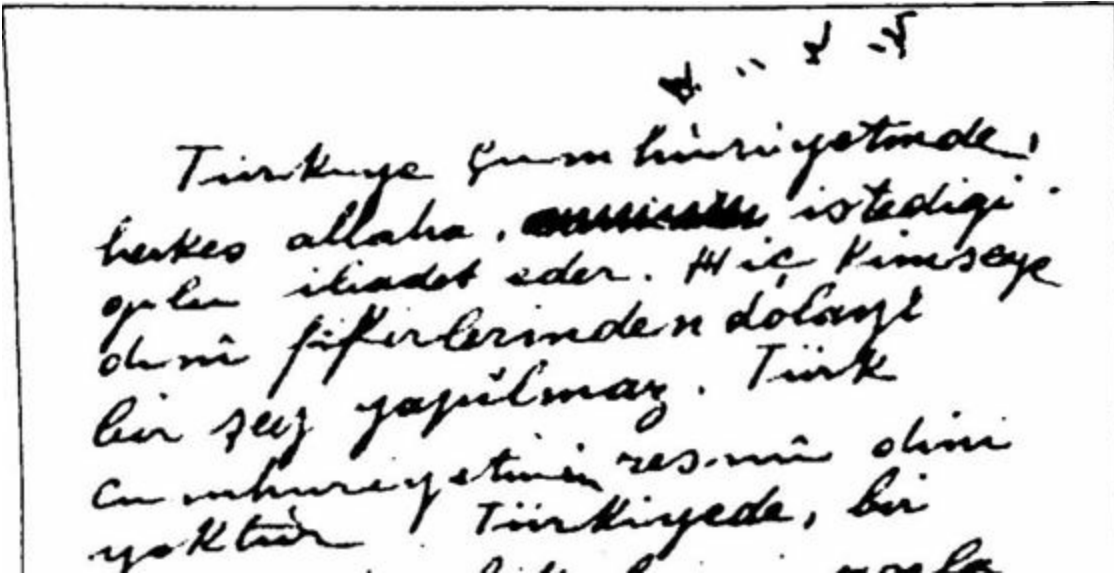 Türkiye Çumhüriyetinde,
herkes allaha, istediği
gibi ibadet eder. Hiç Kimseye
dinî fikirlerinden dolayi
bir şey yapılmaz. Türk
Cumhuriyetinin resmî dini
yoktur Türkiyede, bir